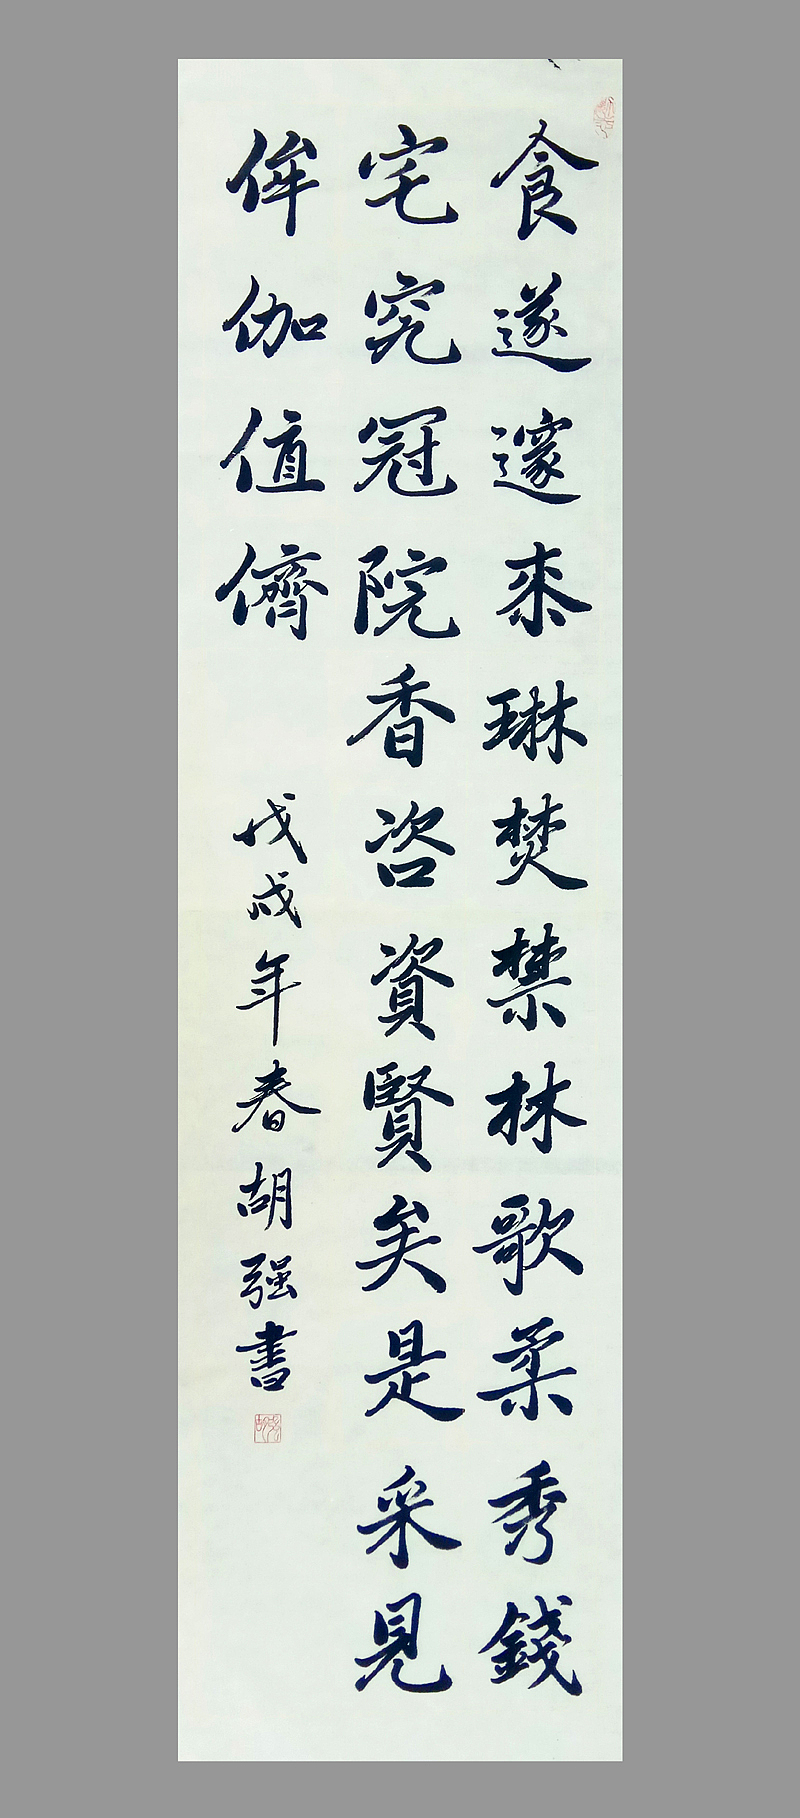 食遂邃来琳焚禁林歌柔秀錢
宅究冠院香咨資賢矣是采見
侔伽值儕
戊戌年春胡强書